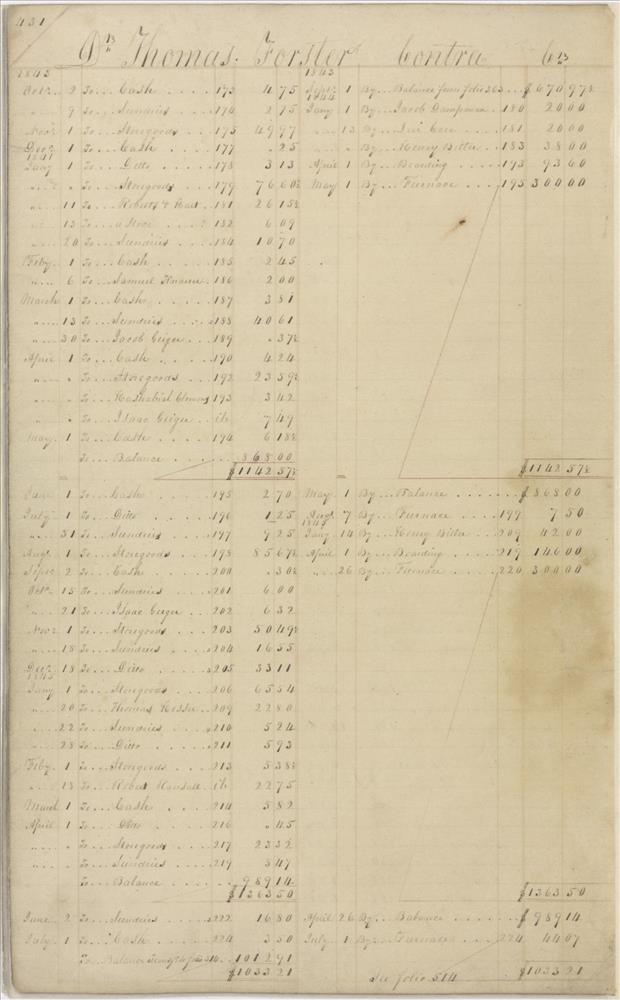 431
Dr. Thomas Forster Contra Cr.
1843 1843
Octr. 2 To Cash 173 4 75 Septr. 1 By Balance from folio 363 $670 97½
" 9 To Sundries 174 2 75 1844 Jany 1 By Jacob Dampman 180 20 00
Novr. 1 To Storegoods 175 49 97 " 13 By Levi 181 20 00
Decr. 1 To Cash 177 " 25 " " By Henry Bitler 183 38 00
1844 Jany 1 To Ditto 178 3 13 April 1 By Boarding 193 93 60
" " To Storegoods 179 76 60½ May 1 By Furnace 195 300 00
" 11 To Roberts & 181 26 15½
" 13 To a Stove 182 6 09
" 20 To Sundries 184 10 70
Feby 1 To Cash 185 2 45
" 6 To Samuel 186 2 00
March 1 To Cash 187 3 81
" 13 To Sundries 188 40 61
" 30 To Jacob Geiger 189 " 37½
April 1 To Cash 190 4 24
" " To Storegoods 192 23 59½
" " To 193 3 42
" " To Isaac Geiger ib 7 49
May 1 To Cash 194 6 18½
To Balance 868 00
$1142 57½ $1142 57½
June 1 To Cash 195 2 70 May 1 By Balance $868 00
July 1 To Ditto 196 1 25 Augt. 7 By Furnace 199 7 50
" 31 To Sundries 197 9 25 1845 Jany 14 By Henry Bitler 209 42 00
Augt. 1 To Storegoods 198 85 67½ April 1 By Boarding 219 146 00
Septr. 2 To Cash 200 " 30½ " 26 By Furnace 220 300 00
Octr. 15 To Sundries 201 6 00
" 21 To Isaac Geiger 202 6 32
Novr. 1 To Storegoods 203 50 49½
" 18 To Sundries 204 16 55
Decr. 18 To Ditto 205 33 11
1845 Jany 1 To Storegoods 206 65 54
" 20 To Thomas 209 22 80
" 22 To Sundries 210 5 24
" 28 To Ditto 211 5 93
Feby 1 To Storegoods 213 5 38½
" 18 To Robert ib 22 75
March 1 To Cash 214 5 82
April 1 To Ditto 216 " 45
" " To Storegoods 217 23 32
" " To Sundries 219 3 47
To Balance 989 14
$1363 50 $1363 50
June 2 To Sundries 222 16 80 April 26 By Balance $989 14
July 1 To Cash 224 3 50 July 1 By Furnace 224 44 07
To Balance folio 514 1012 91
$1033 21 See folio 514 $1033 21